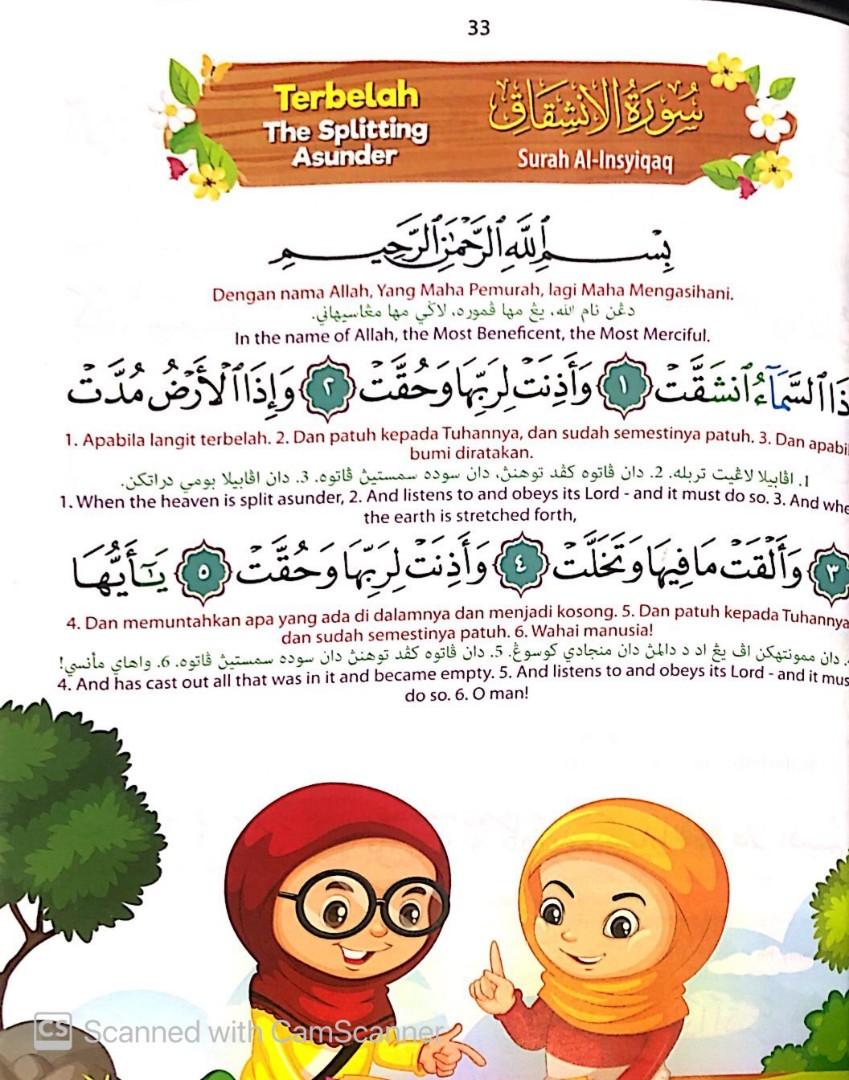 33
Terbelah
The Splitting
Asunder
سُورَةُ الْاِنْشِقَاقِ
Surah Al-Insyiqaq
بِسْمِ ٱللَّهِ ٱلرَّحْمَٰنِ ٱلرَّحِيمِ
Dengan nama Allah, Yang Maha Pemurah, lagi Maha Mengasihani.
دڠن نام الله، يڠ مها ڤموره، لاڬي مها مڠاسيهاني.
In the name of Allah, the Most Beneficent, the Most Merciful.
ذَا ٱلسَّمَآءُ ٱنشَقَّتْ ١ وَأَذِنَتْ لِرَبِّهَا وَحُقَّتْ ٢ وَإِذَا ٱلْأَرْضُ مُدَّتْ
1. Apabila langit terbelah. 2. Dan patuh kepada Tuhannya, dan sudah semestinya patuh. 3. Dan apabi
bumi diratakan.
1. اڤابيلا لاڠيت تربله. 2. دان ڤاتوه كڤد توهنڽ، دان سوده سمستيڽ ڤاتوه. 3. دان اڤابيلا بومي دراتكن.
1. When the heaven is split asunder, 2. And listens to and obeys its Lord - and it must do so. 3. And whe
the earth is stretched forth,
٣ وَأَلْقَتْ مَا فِيهَا وَتَخَلَّتْ ٤ وَأَذِنَتْ لِرَبِّهَا وَحُقَّتْ ٥ يَٰٓأَيُّهَا
4. Dan memuntahkan apa yang ada di dalamnya dan menjadi kosong. 5. Dan patuh kepada Tuhannya
dan sudah semestinya patuh. 6. Wahai manusia!
. دان ممونتهكن اڤ يڠ اد د دالمڽ دان منجادي كوسوڠ. 5. دان ڤاتوه كڤد توهنڽ دان سوده سمستيڽ ڤاتوه. 6. واهاي مأنسي!
4. And has cast out all that was in it and became empty. 5. And listens to and obeys its Lord - and it mus
do so. 6. O man!
CS Scanned with CamScanner